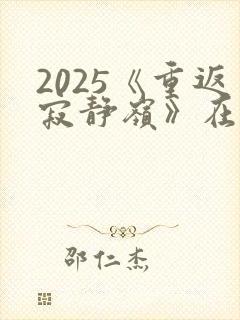 2025《重返
寂静嶺》在
邵仁杰